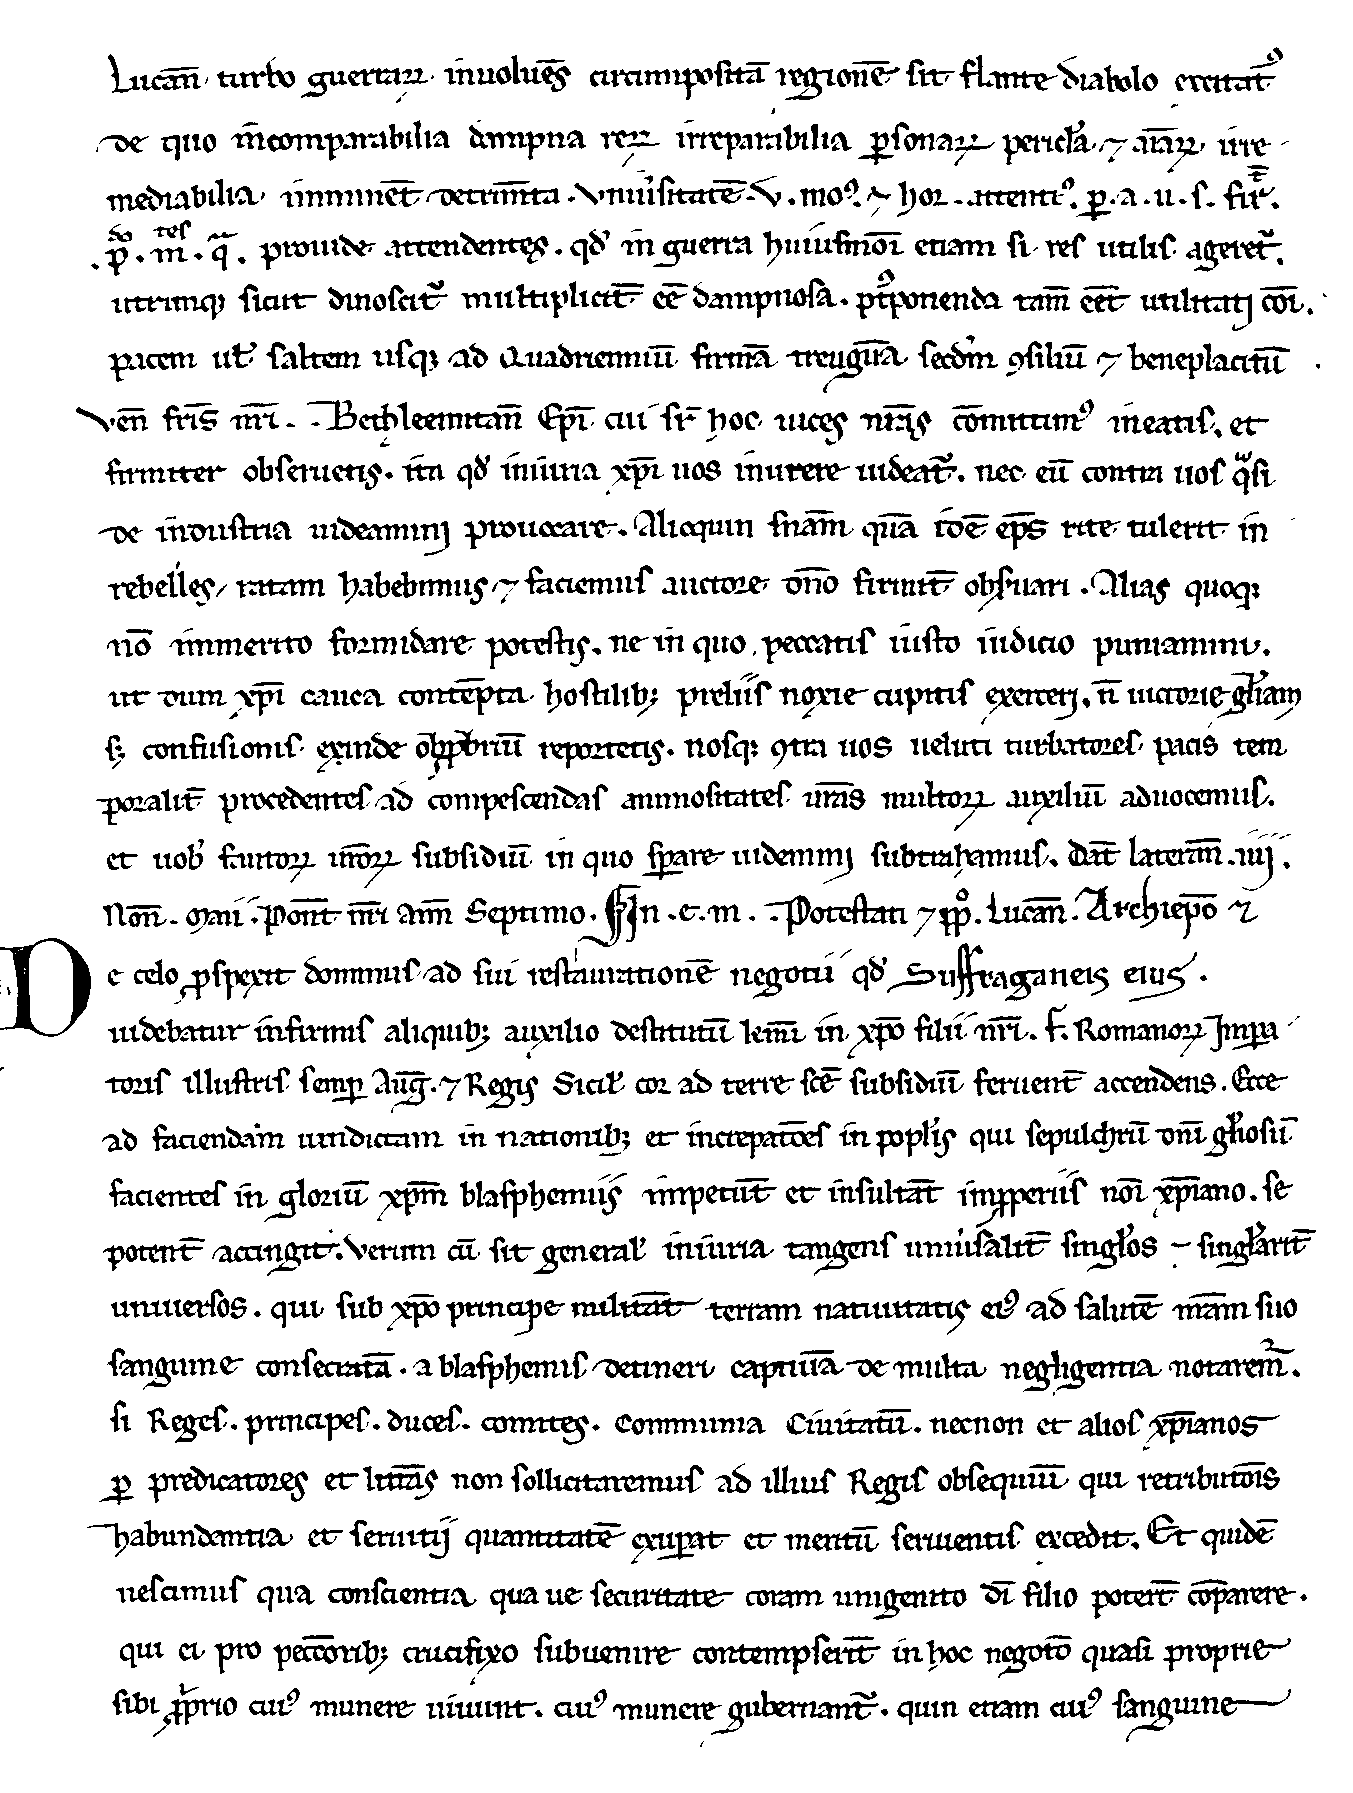 Lucan̄. turbo guerraꝝ. inuoluēs circumpositā regionē sit flante diabolo excitatꝰ
de quo īncomparabilia dampna reꝝ irreparabilia ꝑsonaꝝ pericl̄a. ⁊ aīaꝝ. irre
mediabilia. imminēt detrim̄ta. Vniu̾sitatē. V. moꝰ. ⁊ hor. attentꝰ. ꝑ. a. u. s. fir̄.
.p̄. m̄. q̄. prouide attendentes. qđ in guerra huiusmōi etiam si res utilis ageret᷑.
utrimqꝫ sicut dinoscit᷑ multiplicit̄ eē dampnosa. p̄tponenda tam̄ eēt utilitati cōi.
pacem ut̾ saltem usqꝫ ad Quadrienniū firmā treuguā secd̄m ꝯsiliū ⁊ beneplacitū
Ven̄ fr̄is nr̄i. Bethleemitan̄ Ep̄i. cui sr̄ hoc uices nr̄as cōmittimꝰ ineatis. et
firmiter obseruetis. ita qđ iniuria xp̄i uos inurere uideat᷑. nec eū contra uos q̈si
de industria uideamini prouocare. Alioquin sn̄iam quā idē ep̄s rite tulerit in
rebelles, ratam habebimus ⁊ faciemus auctore dn̄o firmit̄ obs̾uari. Alias quoqꝫ
nō immerito formidare potestis. ne in quo peccatis iusto iudicio puniamini.
ut dum xp̄i causa contēpta hostilibꝫ preliis noxie cupitis exerceri. n̄ uictorie gl̄iam
sꝫ confusionis exinde obꝓbriū reportetis. nosqꝫ ꝯtra uos ueluti turbatores pacis tem
poralit̄ procedentes ad compescendas animositates ur̄as multoꝝ auxiliū aduocemus.
et uob̾ fautoꝝ ur̄oꝝ subsidiū in quo sꝑare uidemini subtrahamus. Dat̄ lateran̄. iiij.
Non̄. Maii. Pont̄ nr̄i Ann̄ Septimo. In. e. m. Potestati ⁊ pp̄ꝉo. Lucan̄. Archiep̄o ⁊
De celo ꝓspexit dominus ad sui restaurationē negotii qđ Suffraganeis eius.
uidebatur infirmis aliquibꝫ auxilio destitutū kr̄mi in xp̄o filii nr̄i. F. Romanoꝝ Imꝑa
toris illustris semꝑ Auḡ. ⁊ Regis Sicil̾ cor ad terre sc̄e subsidiū feruent̄ accendens. Ecce
ad faciendam uindictam in nationibꝫ et increpatōes in popl̾is qui sepulchrū dn̄i gl̾iosū
facientes in gloriū xp̄m blasphemiis impetūt et insultāt imꝓperiis nōi xp̄iano. se
potent̄ accingit. Verum cū sit general̾ iniuria tangens uniu̾salit̄ singl̾os ⁊ singl̾arit̄
uniuersos. qui sub xp̄o principe militāt terram natiuitatis eiꝰ ad salutē nr̄am suo
sanguine consecratā. a blasphemis detineri captiuā de multa negligentia notarem᷑.
si Reges. principes. duces. comites. Communia Ciuitatū. necnon et alios xp̄ianos
ꝑ predicatores et litt̄as non sollicitaremus ad illius Regis obsequiū qui retributōis
habundantia et seruitij quantitatē exuꝑat et meritū seruientis excedit. Et quidē
nescimus qua conscientia qua ue securitate coram unigenito dī filio potert̄ cōparere.
qui ei pro peccōribꝫ crucifixo subuenire contempserīt in hoc negotō quasi proprie
sibi ꝓprio cuiꝰ munere uiuunt. cuiꝰ munere gubernant᷑. quin etiam cuiꝰ sanguine